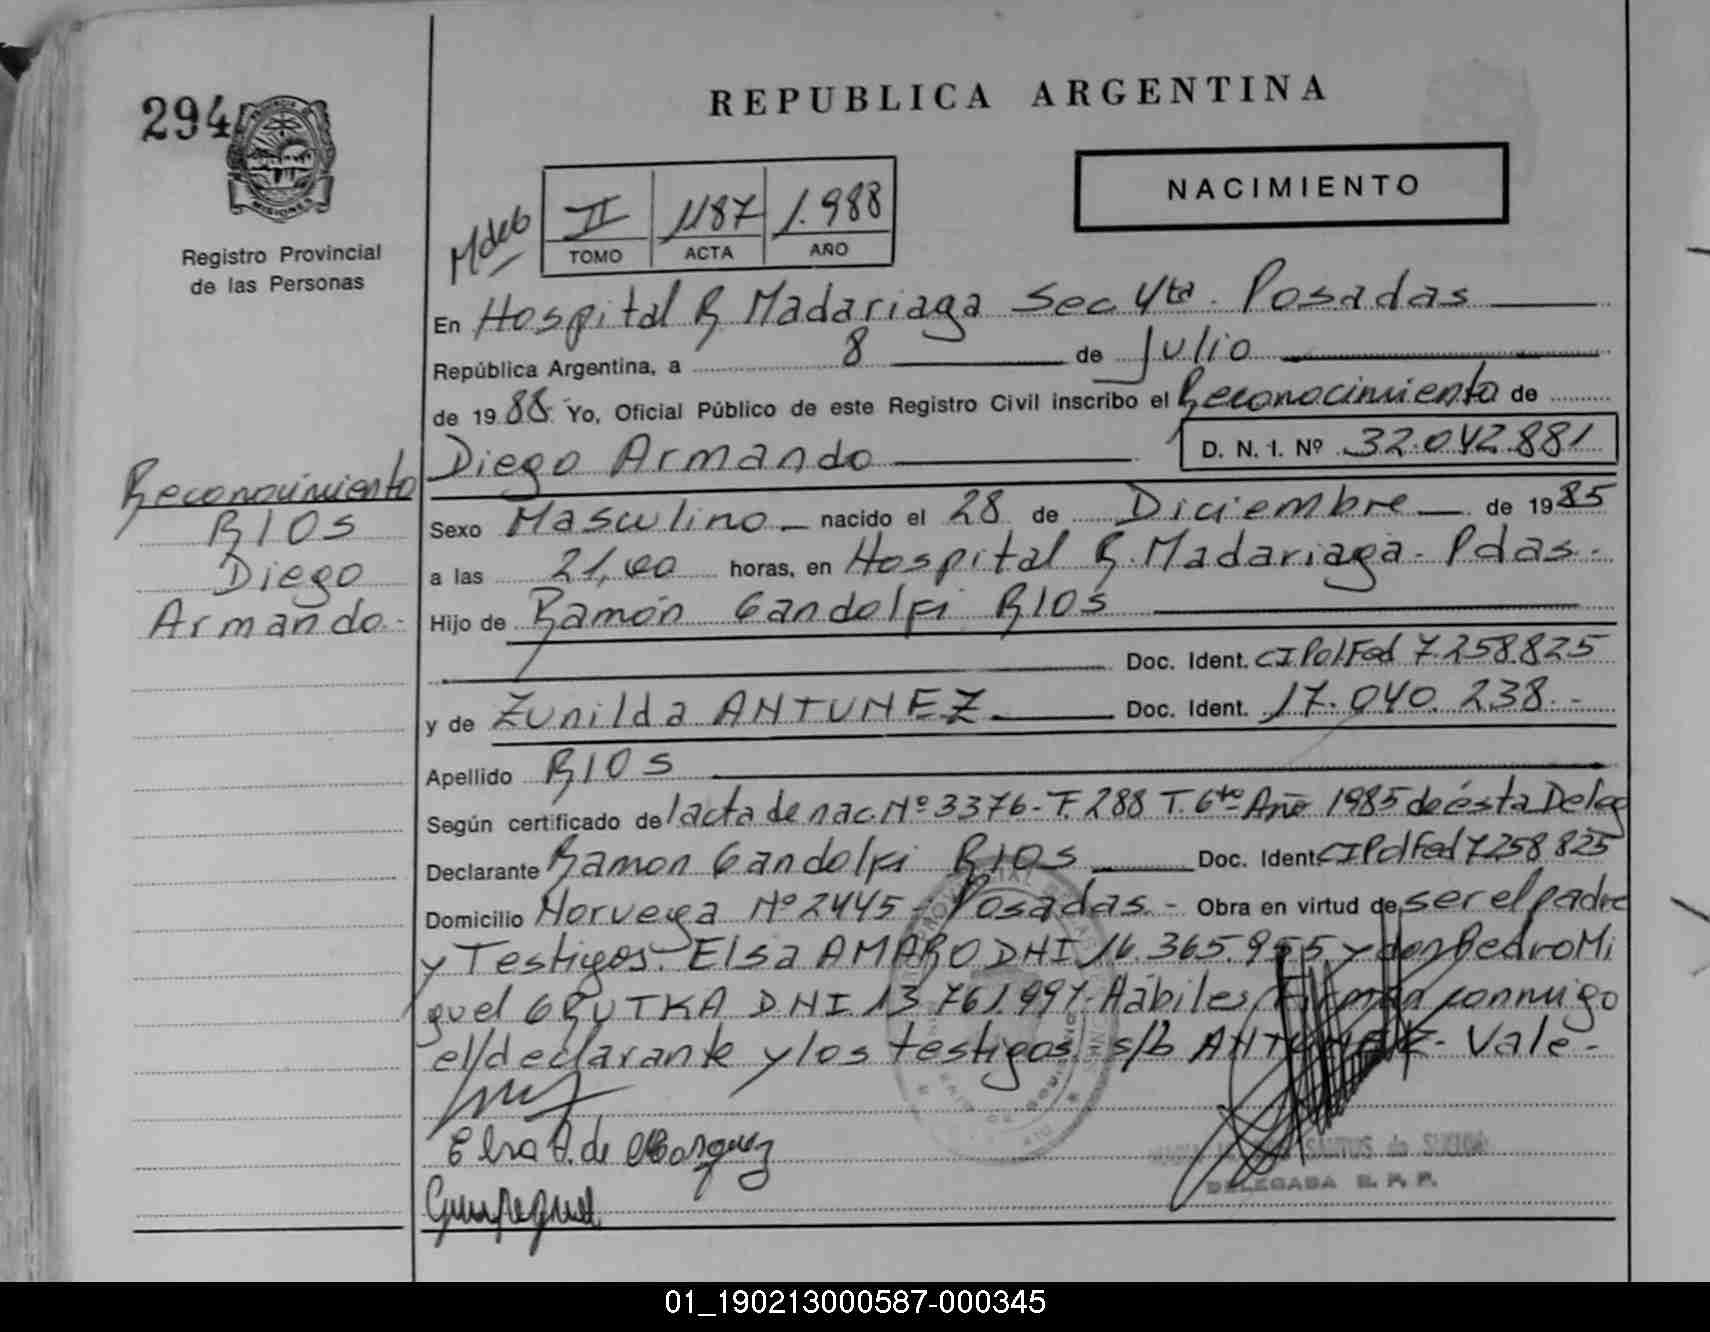 294
REPUBLICA ARGENTINA
MISIONES
Registro Provincial
de las Personas
NACIMIENTO
II 1187 1.988
TOMO ACTA AÑO
En Hospital R Madariaga Sec 4ta. Posadas
República Argentina, a 8 de Julio
de 1988. Yo, Oficial Público de este Registro Civil inscribo el Reconocimiento de
Diego Armando D. N. I. Nº 32.042.881
Reconocimiento
RIOS
Diego
Armando.-
Sexo Masculino nacido el 28 de Diciembre de 1985
a las 21,00 horas, en Hospital R. Madariaga- Pdas.-
Hijo de Ramón Gandolfi RIOS
Doc. Ident. CI Pol Fed 7.258.825
y de Zunilda ANTUNEZ Doc. Ident. 17.040.238.-
Apellido RIOS
Según certificado de l acta de nac. Nº 3376- F. 288 T. 6to Año 1985 de ésta Deleg
Declarante Ramon Gandolfi RIOS Doc. Ident. CI Pol Fed 7258 825
Domicilio Noruega Nº 2445 - Posadas.- Obra en virtud de ser el padre
y Testigos. Elsa AMARO DNI 16.365.955 y don Pedro Mi
guel GRUTKA DNI 13.761.997. Hábiles, Firman conmigo
el/declarante y los testigos. s/b ANTUNEZ- Vale-
Elsa A. de
DELEGADA R. P. P.
01_190213000587-000345